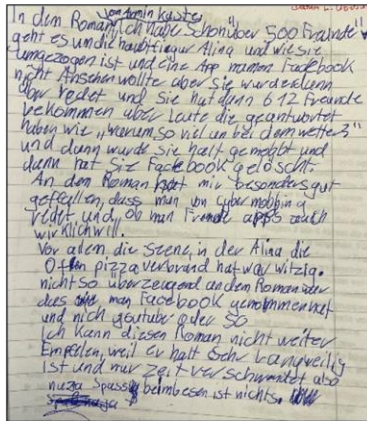 In dem Roman „Ich habe schon über 500 Freunde"
von Armin Kaster
geht es um die haubtfigur Alina und wie sie
umgezogen ist und eine App namen Facebook
nicht Ansehen wollte aber sie wurde dann
über redet und sie hat dann 612 Freunde
bekommen aber Leute die geantwortet
haben wie „warum so viel an bei dem wetter?"
und dann wurde sie halt gemobbt und
dann hat sie Facebook gelöscht.
An den Roman hat mir besonders gut
gefallen, dass man von Cyber mobbing
redet und ob man Fremde apps
wirklich will.
Vor allem die Szene, in der Alina die
Ofen pizza verbrand hat war witzig.
nicht so überzeugend an dem Roman war
dass man Facebook genommen hat
und nich youtube oder so
Ich kann diesen Roman nicht weiter
Empfelen, weil er halt Sehr Langweilig
ist und nur zeit verschwendet also
Spass beim lesen ist nichts.